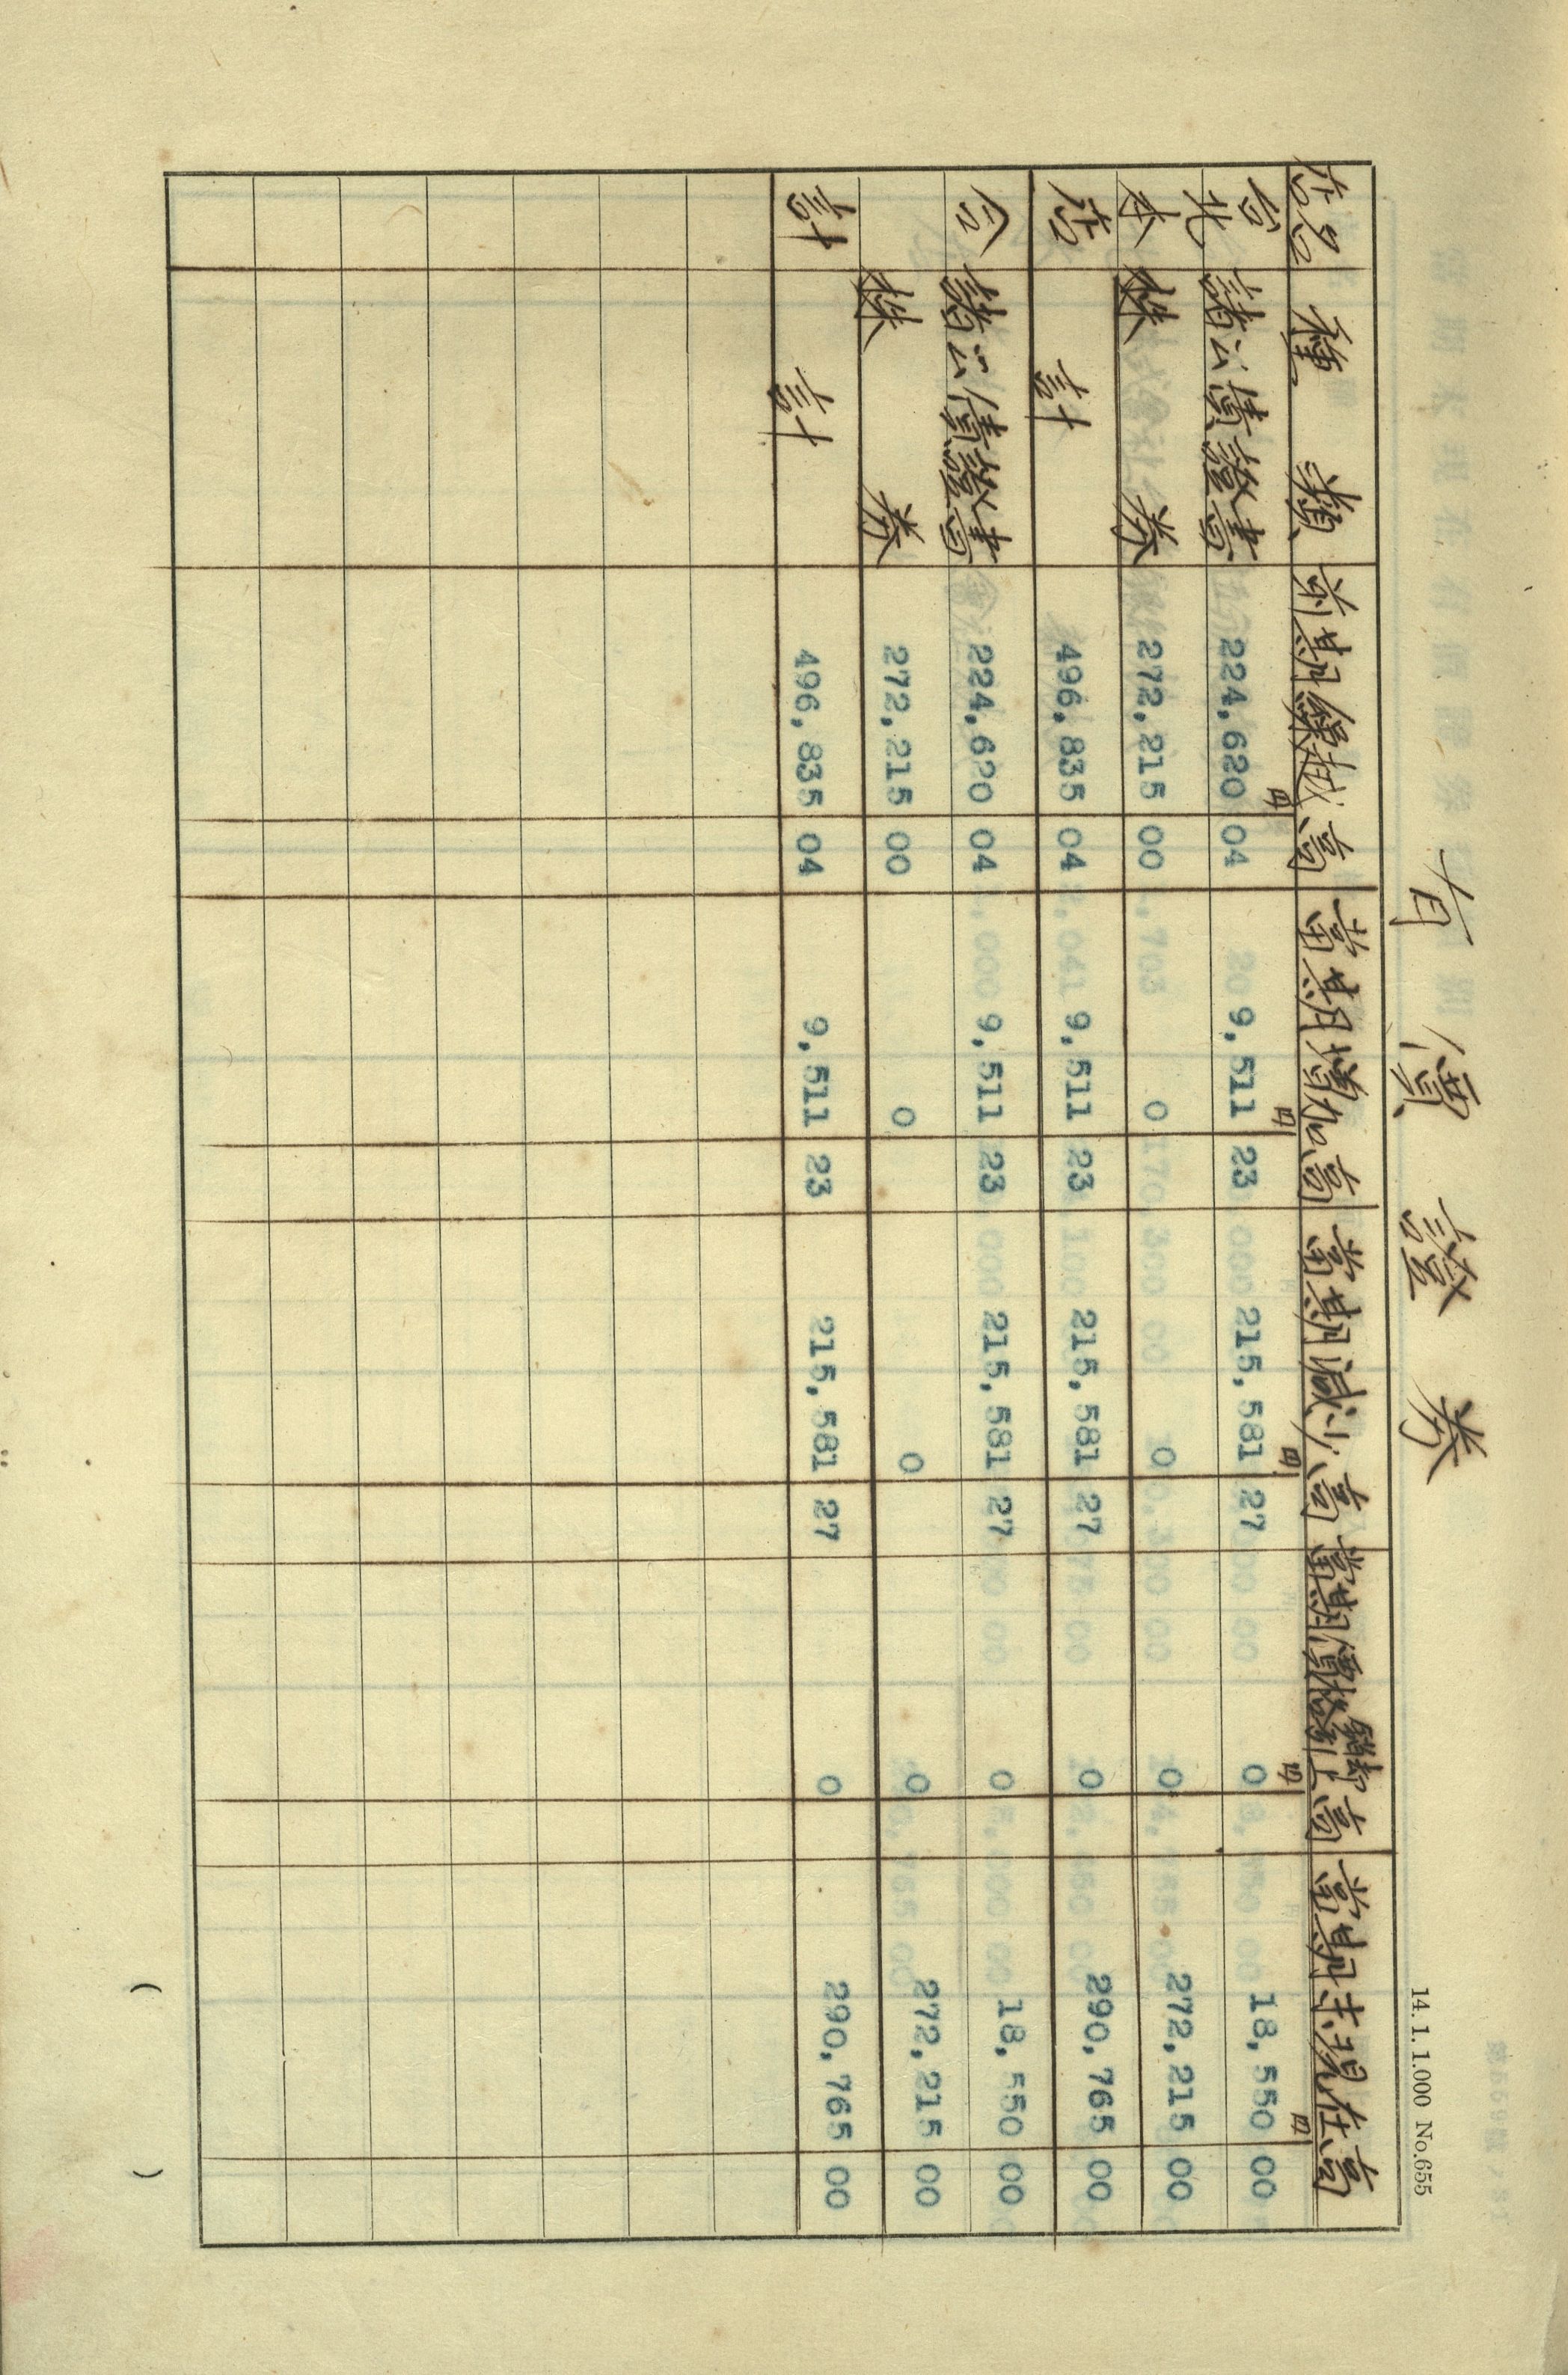 有價證券
14. 1. 1.000 No.655
店名 種類 前期繰越高 當期增加高 當期減少高 當期價格銷却高 當期末現在高
円 円 円 円 円
台北 諸公債證書 224,620 04 9,511 23 215,581 27 0 18,550 00
本 株券 272,215 00 0 0 0 272,215 00
店 計 496,835 04 9,511 23 215,581 27 0 290,765 00
合 諸公債證書 224,620 04 9,511 23 215,581 27 0 18,550 00
株券 272,215 00 0 0 0 272,215 00
計 計 496,835 04 9,511 23 215,581 27 0 290,765 00
( )